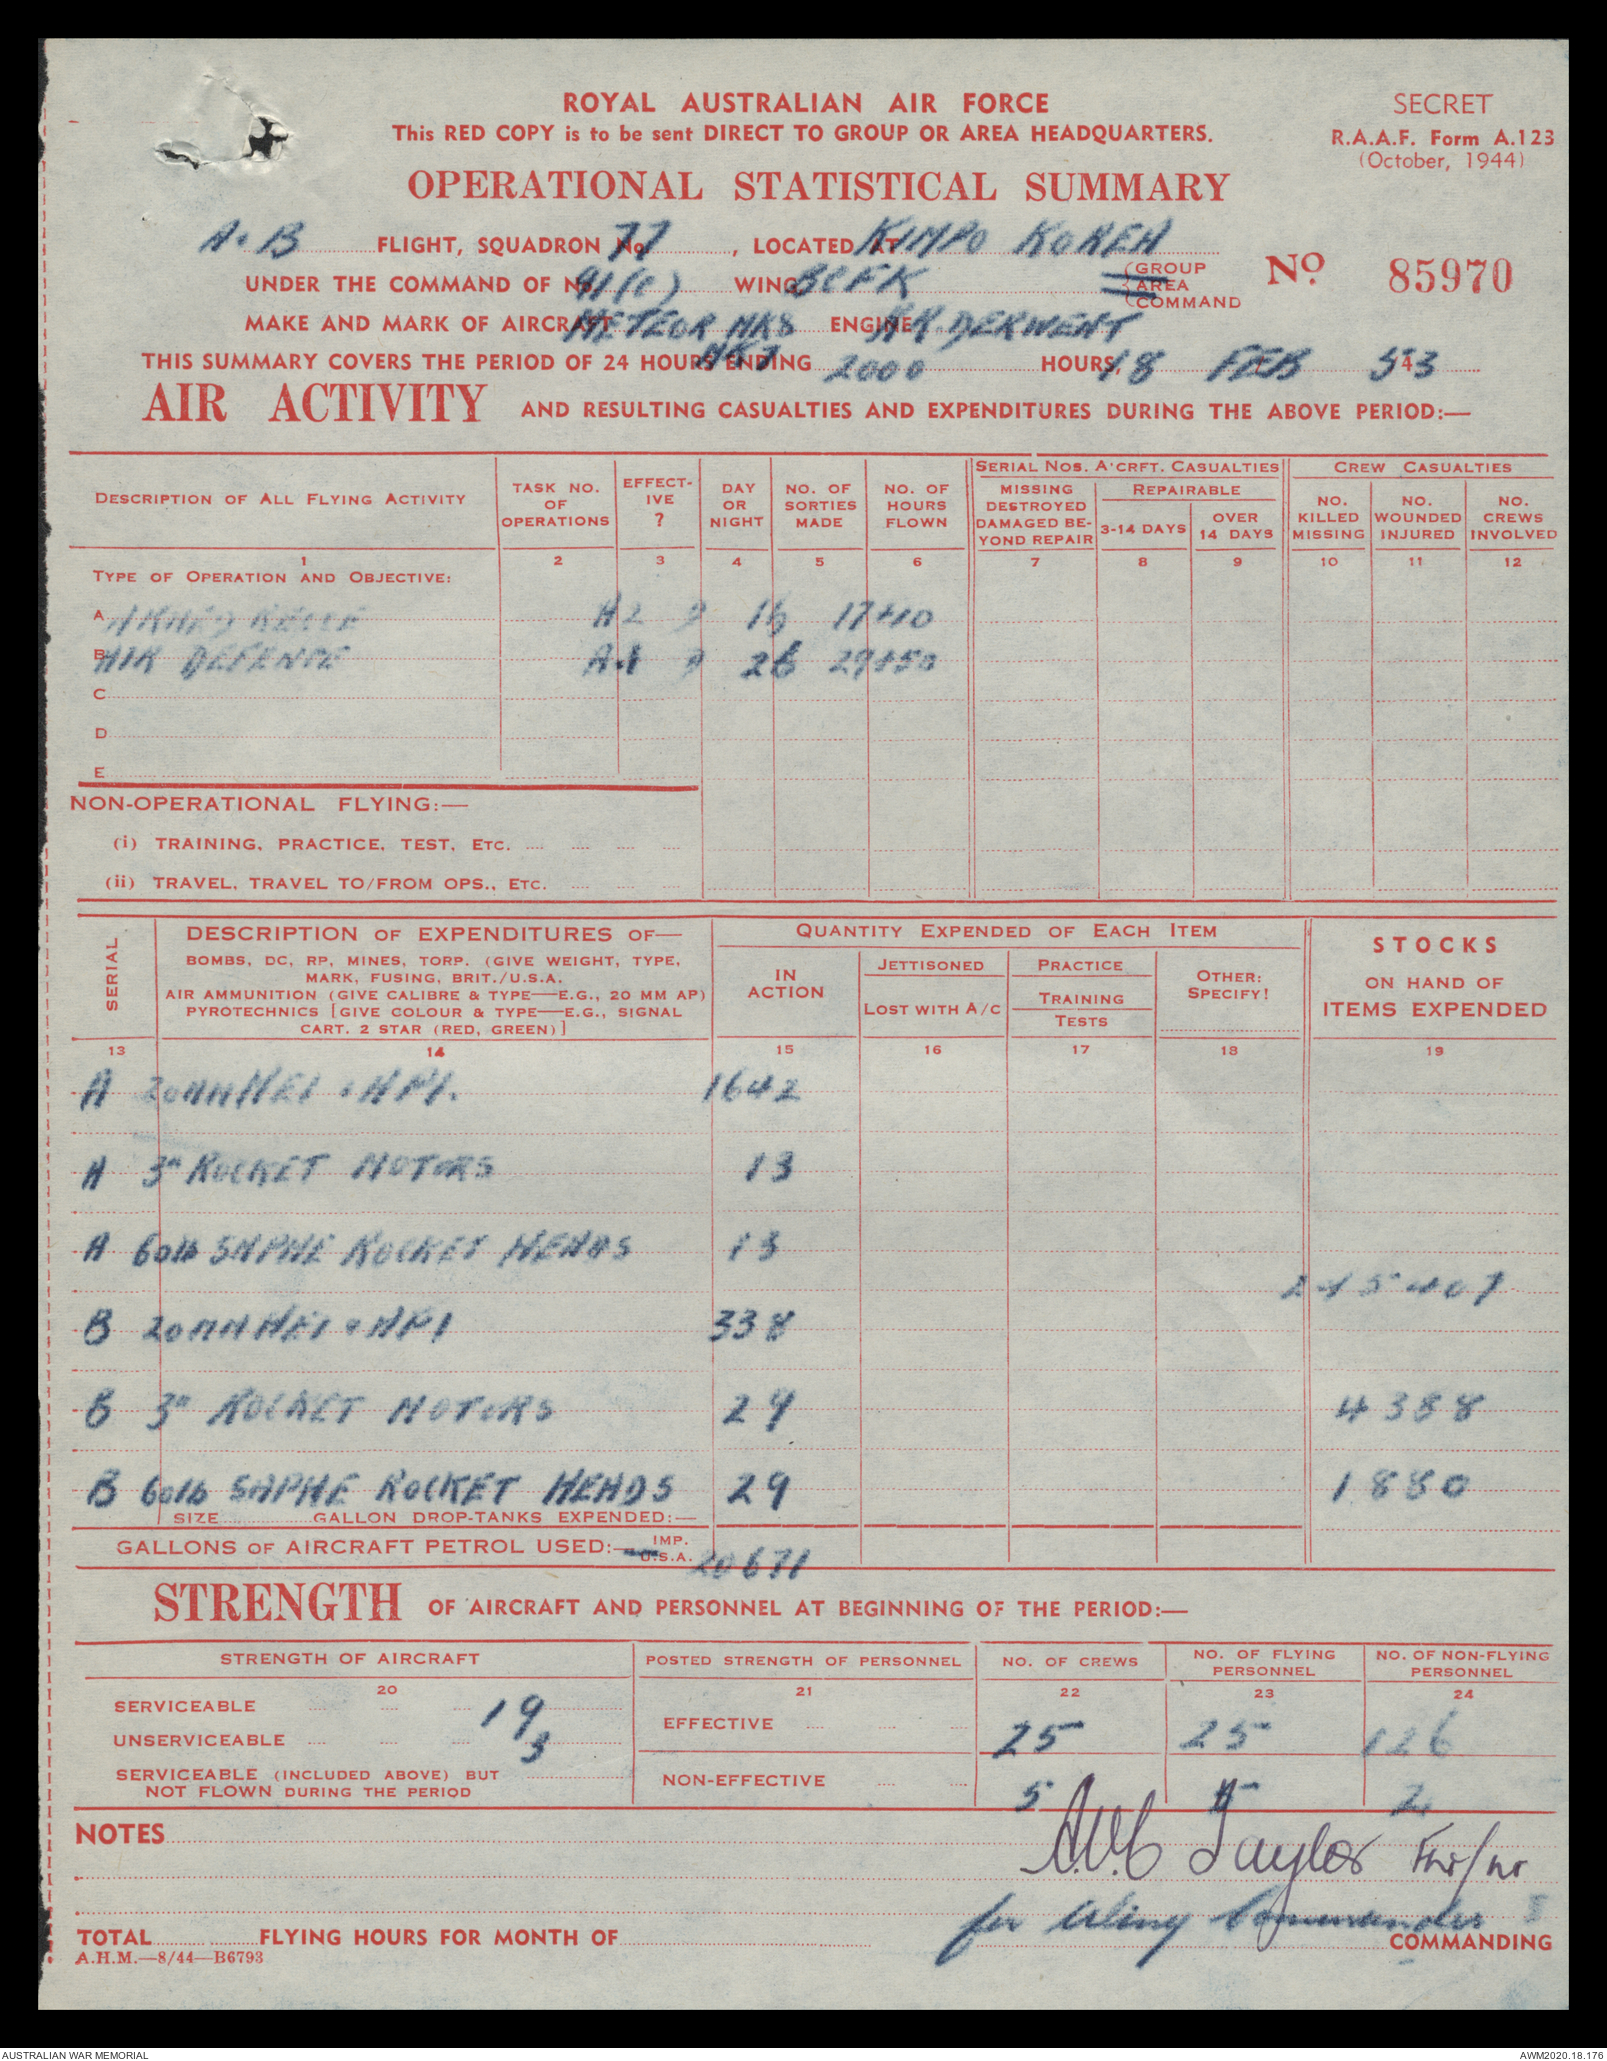 ROYAL AUSTRALIAN AIR FORCE
This RED COPY is to be sent DIRECT TO GROUP OR AREA HEADQUARTERS.
SECRET
R.A.A.F. Form A.123
(October, 1944)
OPERATIONAL STATISTICAL SUMMARY
A. B FLIGHT, SQUADRON No. 77, LOCATED AT KIMPO KOREA
UNDER THE COMMAND OF No. 91(c) WING, BCFK GROUP AREA COMMAND
No. 85970
MAKE AND MARK OF AIRCRAFT METEOR MK8 ENGINE RR DERWENT
MK7
THIS SUMMARY COVERS THE PERIOD OF 24 HOURS ENDING 2000 HOURS, 18 FEB 53
AIR ACTIVITY AND RESULTING CASUALTIES AND EXPENDITURES DURING THE ABOVE PERIOD:—
DESCRIPTION OF ALL FLYING ACTIVITY
TASK NO. OF OPERATIONS
EFFECTIVE ?
DAY OR NIGHT
NO. OF SORTIES MADE
NO. OF HOURS FLOWN
SERIAL NOS. A'CRFT. CASUALTIES
MISSING DESTROYED DAMAGED BEYOND REPAIR
REPAIRABLE
3-14 DAYS
OVER 14 DAYS
CREW CASUALTIES
NO. KILLED MISSING
NO. WOUNDED INJURED
NO. CREWS INVOLVED
1 2 3 4 5 6 7 8 9 10 11 12
TYPE OF OPERATION AND OBJECTIVE:
A ARMED RECCE A2 D 16 17+10
B AIR DEFENCE A1 D 26 29+50
C
D
E
NON-OPERATIONAL FLYING:—
(i) TRAINING, PRACTICE, TEST, ETC.
(ii) TRAVEL, TRAVEL TO/FROM OPS., ETC.
SERIAL
DESCRIPTION OF EXPENDITURES OF—
BOMBS, DC, RP, MINES, TORP. (GIVE WEIGHT, TYPE,
MARK, FUSING, BRIT./U.S.A.
AIR AMMUNITION (GIVE CALIBRE & TYPE—E.G., 20 MM AP)
PYROTECHNICS [GIVE COLOUR & TYPE—E.G., SIGNAL
CART. 2 STAR (RED, GREEN)]
QUANTITY EXPENDED OF EACH ITEM
IN ACTION
JETTISONED
LOST WITH A/C
PRACTICE
TRAINING
TESTS
OTHER: SPECIFY!
STOCKS
ON HAND OF
ITEMS EXPENDED
13 14 15 16 17 18 19
A 20MM HEI & API. 1642
A 3" ROCKET MOTORS 13
A 60lb SAPHE ROCKET HEADS 13
245407
B 20MM HEI & API 338
B 3" ROCKET MOTORS 29 4388
B 60lb SAPHE ROCKET HEADS 29 1880
SIZE GALLON DROP-TANKS EXPENDED:—
GALLONS OF AIRCRAFT PETROL USED:— IMP. U.S.A. 20671
STRENGTH OF AIRCRAFT AND PERSONNEL AT BEGINNING OF THE PERIOD:—
STRENGTH OF AIRCRAFT
POSTED STRENGTH OF PERSONNEL
NO. OF CREWS
NO. OF FLYING PERSONNEL
NO. OF NON-FLYING PERSONNEL
20 21 22 23 24
SERVICEABLE 19
EFFECTIVE 25 25 126
UNSERVICEABLE 3
SERVICEABLE (INCLUDED ABOVE) BUT
NOT FLOWN DURING THE PERIOD
NON-EFFECTIVE 5 5 2
NOTES
Taylor
for Wing Commander
TOTAL FLYING HOURS FOR MONTH OF
COMMANDING
A.H.M.—8/44—B6793
AUSTRALIAN WAR MEMORIAL
AWM2020.18.176